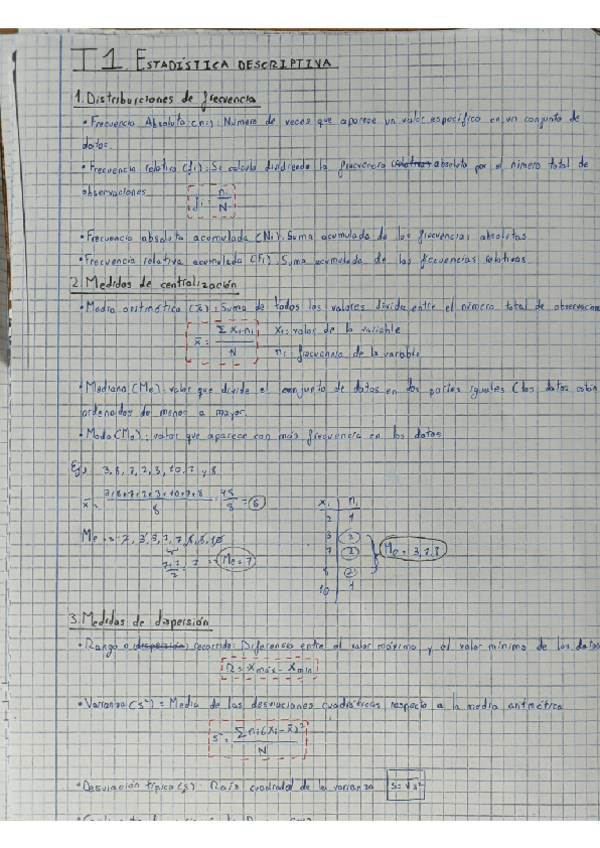 T1 ESTADÍSTICA DESCRIPTIVA
1. Distribuciones de frecuencia
• Frecuencia Absoluta (ni): Número de veces que aparece un valor específico en un conjunto de
datos.
• Frecuencia relativa (fi): Se calcula dividiendo la frecuencia absoluta por el número total de
observaciones
fi = ni / N
• Frecuencia absoluta acumulada (Ni): Suma acumulada de las frecuencias absolutas
• Frecuencia relativa acumulada (Fi): Suma acumulada de las frecuencias relativas
2. Medidas de centralización
• Media aritmética (x̄): Suma de todos los valores divida entre el número total de observacion
x̄ = Σ xi·ni / N
xi: valor de la variable
ni: frecuencia de la variable
• Mediana (Me): valor que divide el conjunto de datos en dos partes iguales (los datos están
ordenados de menor a mayor.
• Moda (Mo): valor que aparece con más frecuencia en los datos
Ej: 3, 8, 7, 2, 3, 10, 7 y 8
x̄ = 3+8+7+2+3+10+7+8 / 8 = 48 / 8 = 6
Me = 2, 3, 3, 7, 7, 8, 8, 10
7+7 / 2 = 7 → Me = 7
xi ni
2 1
3 2
7 2
8 2
10 1
Mo = 3, 7, 8
3. Medidas de dispersión
• Rango o recorrido: Diferencia entre el valor máximo y el valor mínimo de los datos
R = xmáx - xmin
• Varianza (s²) = Media de las desviaciones cuadráticas respecto a la media aritmética
Σ ni (xi - x̄)² / N
• Desviación típica (s): Raíz cuadrada de la varianza S = √s²